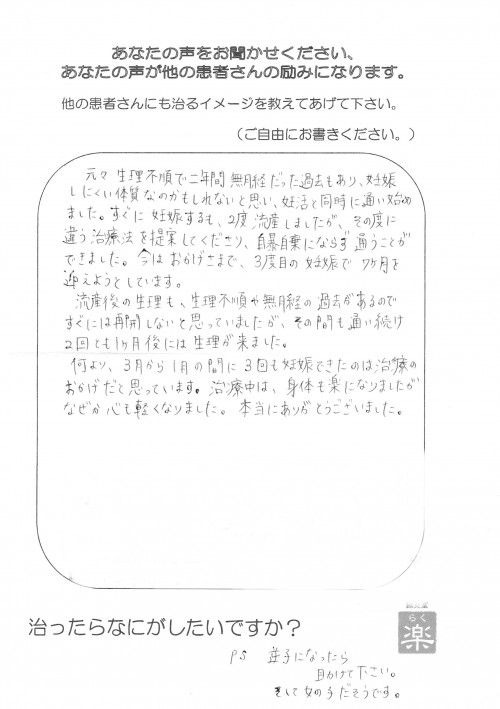 あなたの声をお聞かせください、
あなたの声が他の患者さんの励みになります。
他の患者さんにも治るイメージを教えてあげて下さい。
(ご自由にお書きください。)
元々 生理不順で二年間 無月経だった過去もあり、妊娠
しにくい体質なのかもしれないと思い、妊活と同時に通い始め
ました。すぐに 妊娠するも、2度 流産しましたが、その度に
違う治療法を提案してくださり、自暴自棄にならず 通うことが
できました。今は おかげさまで、3度目の 妊娠で 7ヶ月を
迎えようとしています。
流産後の生理も、生理不順や無月経の過去があるので
すぐには再開しないと思っていましたが、その間も通い続け
2回とも1ヶ月後には生理が来ました。
何より、3月から1月の間に3回も妊娠できたのは治療の
おかげだと思っています。治療中は、身体も楽になりましたが
なぜか心も軽くなりました。本当にありがとうございました。
治ったらなにがしたいですか?
らく
楽
PS 逆子になったら
助けて下さい。
そして女の子だそうです。